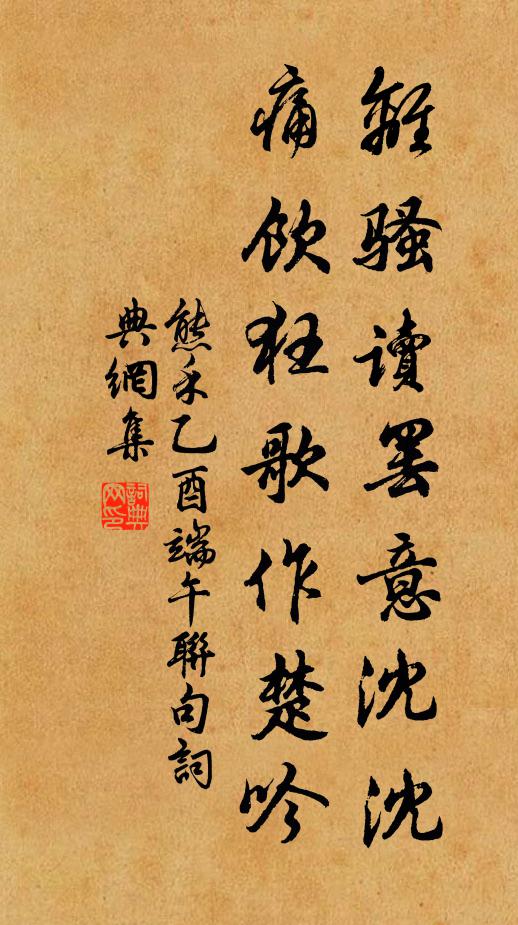 離騷讀罢意沈沈
痛飲狂歌作楚吟
熊禾乙酉端午聯句詞
典網集
詞典
网印